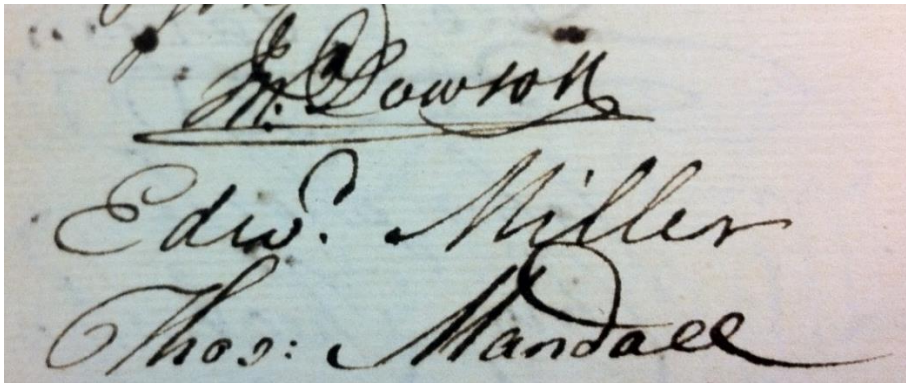 Jn. Dowson
Edwd. Miller
Thos: Mandall